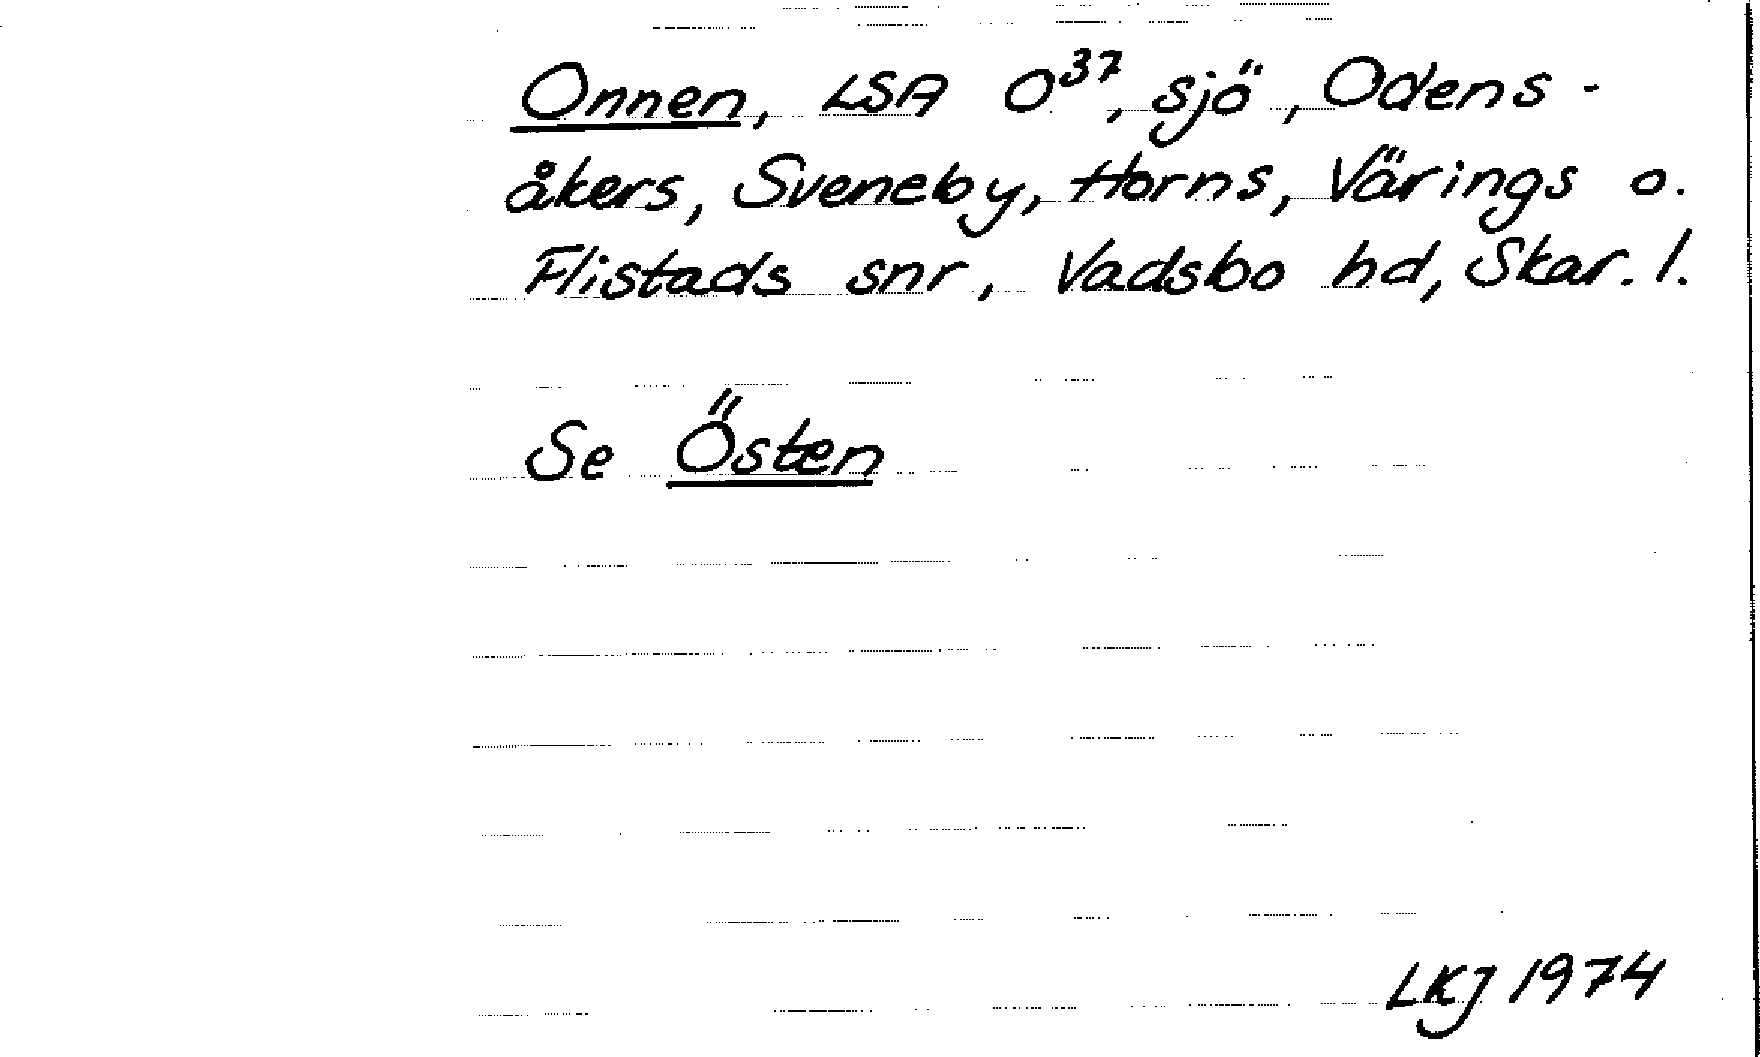 Onnen, LSA O37, sjö, Odens-
åkers, Sveneby, Horns, Värings o.
Flistads snr, Vadsbo hd, Skar. l.
Se Östen
LKJ 1974